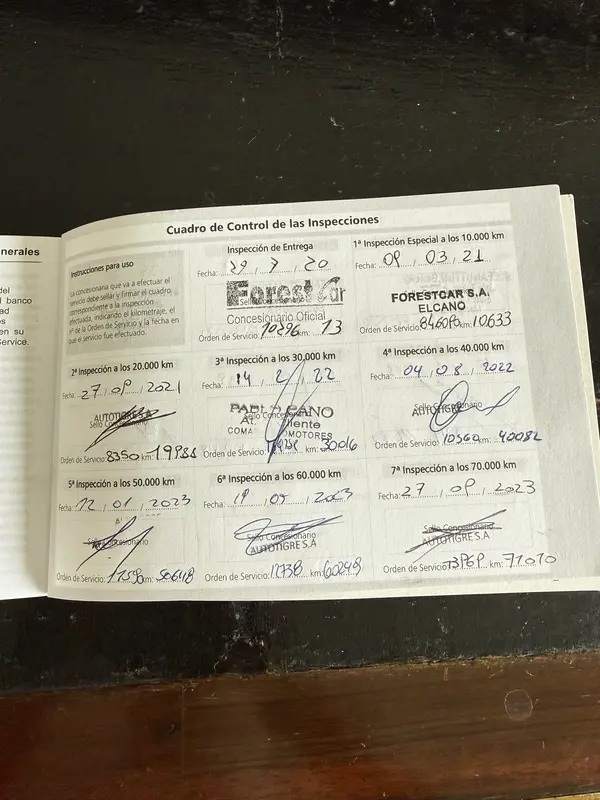 nerales
del
banco
ad
s
en su
Service.
Cuadro de Control de las Inspecciones
Instrucciones para uso
La concesionaria que va a efectuar el
servicio debe sellar y firmar el cuadro
correspondiente a la inspección
efectuada, indicando el kilometraje, el
nº de la Orden de Servicio y la fecha en
que el servicio fue efectuado.
Inspección de Entrega
Fecha: 29, 7, 20
Forestcar
Concesionario Oficial
Orden de Servicio: 10296 km: 13
1ª Inspección Especial a los 10.000 km
Fecha: 09, 03, 21
FORESTCAR S.A.
ELCANO
Orden de Servicio: km: 10633
2ª Inspección a los 20.000 km
Fecha: 27, 09, 2021
AUTOTIGRE S.A
Sello Concesionario
Orden de Servicio: 8350 km: 19988
3ª Inspección a los 30.000 km
Fecha: 14, 2, 22
Sello Concesionario
MOTORES
Orden de Servicio: km: 30016
4ª Inspección a los 40.000 km
Fecha: 04, 08, 2022
Sello Concesionario
AUTOTIGRE
Orden de Servicio: 10560 km: 40082
5ª Inspección a los 50.000 km
Fecha: 12, 01, 2023
Sello Concesionario
Orden de Servicio: 11598 km: 50648
6ª Inspección a los 60.000 km
Fecha: 2023
Sello Concesionario
AUTOTIGRE S.A
Orden de Servicio: 12738 km: 60249
7ª Inspección a los 70.000 km
Fecha: 27, 09, 2023
Sello Concesionario
AUTOTIGRE S.A
Orden de Servicio: 13969 km: 71070